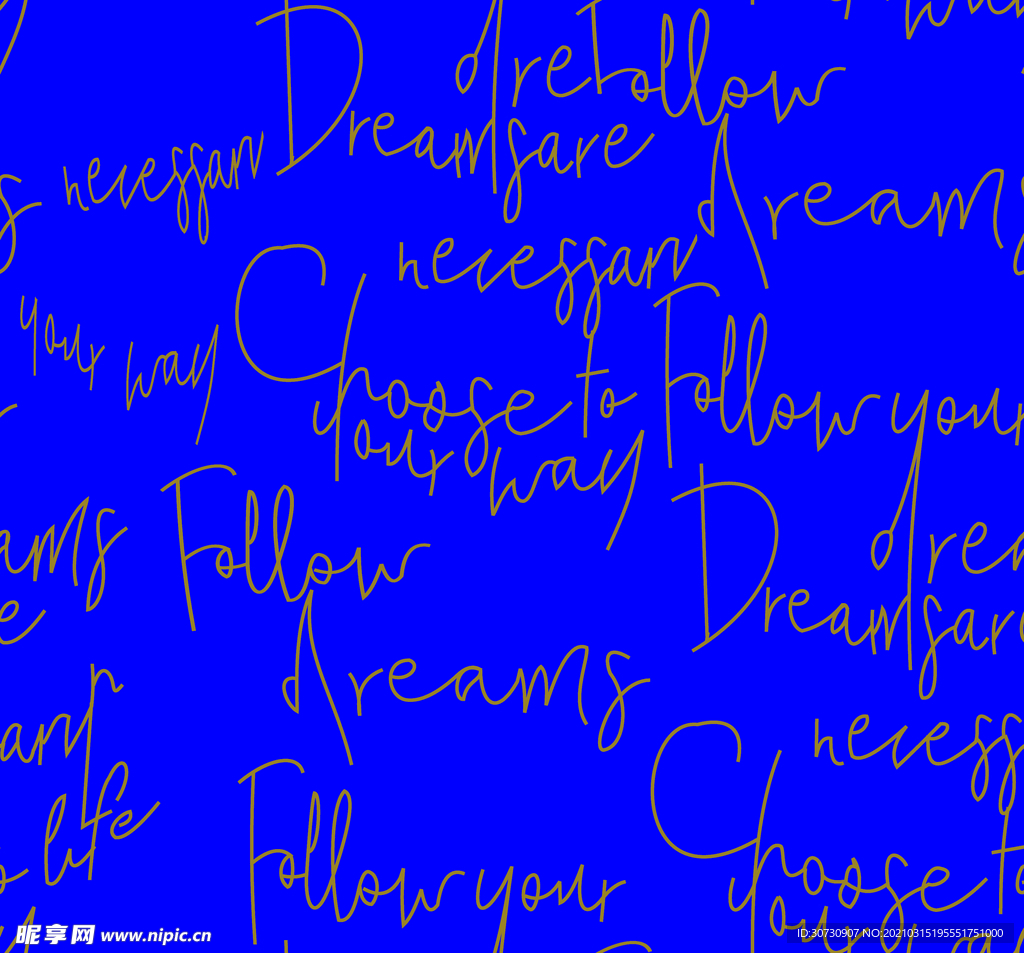 dre Follow
Dreams are
necessary
dreams
necessary
your way
Choose to
Follow your
your way
Follow
dre
ams
Dreams are
dreams
necess
life
Choose to
Follow your
昵享网 www.nipic.cn
ID:30730907 NO:20210315195551751000